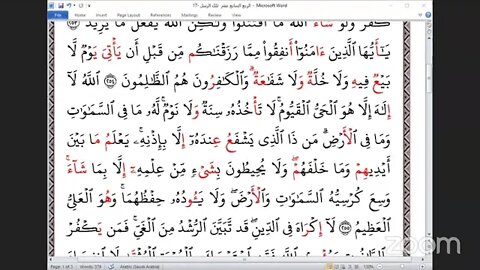 الربع السابع عشر - تلك الرسل -17 - Microsoft Word
File Home Insert Page Layout References Mailings Review View
كَفَرَ وَلَوْ شَآءَ ٱللَّهُ مَا ٱقْتَتَلُوا۟ وَلَٰكِنَّ ٱللَّهَ يَفْعَلُ مَا يُرِيدُ
يَٰٓأَيُّهَا ٱلَّذِينَ ءَامَنُوٓا۟ أَنفِقُوا۟ مِمَّا رَزَقْنَٰكُم مِّن قَبْلِ أَن يَأْتِىَ يَوْمٌ لَّا
بَيْعٌ فِيهِ وَلَا خُلَّةٌ وَلَا شَفَٰعَةٌ ۗ وَٱلْكَٰفِرُونَ هُمُ ٱلظَّٰلِمُونَ ٢٥٤ ٱللَّهُ لَآ
إِلَٰهَ إِلَّا هُوَ ٱلْحَىُّ ٱلْقَيُّومُ ۚ لَا تَأْخُذُهُۥ سِنَةٌ وَلَا نَوْمٌ ۚ لَّهُۥ مَا فِى ٱلسَّمَٰوَٰتِ
وَمَا فِى ٱلْأَرْضِ ۗ مَن ذَا ٱلَّذِى يَشْفَعُ عِندَهُۥٓ إِلَّا بِإِذْنِهِۦ ۚ يَعْلَمُ مَا بَيْنَ
أَيْدِيهِمْ وَمَا خَلْفَهُمْ ۖ وَلَا يُحِيطُونَ بِشَىْءٍ مِّنْ عِلْمِهِۦٓ إِلَّا بِمَا شَآءَ ۚ
وَسِعَ كُرْسِيُّهُ ٱلسَّمَٰوَٰتِ وَٱلْأَرْضَ ۖ وَلَا يَـُٔودُهُۥ حِفْظُهُمَا ۚ وَهُوَ ٱلْعَلِىُّ
ٱلْعَظِيمُ ٢٥٥ لَآ إِكْرَاهَ فِى ٱلدِّينِ ۖ قَد تَّبَيَّنَ ٱلرُّشْدُ مِنَ ٱلْغَىِّ ۚ فَمَن يَكْفُرْ
zoom